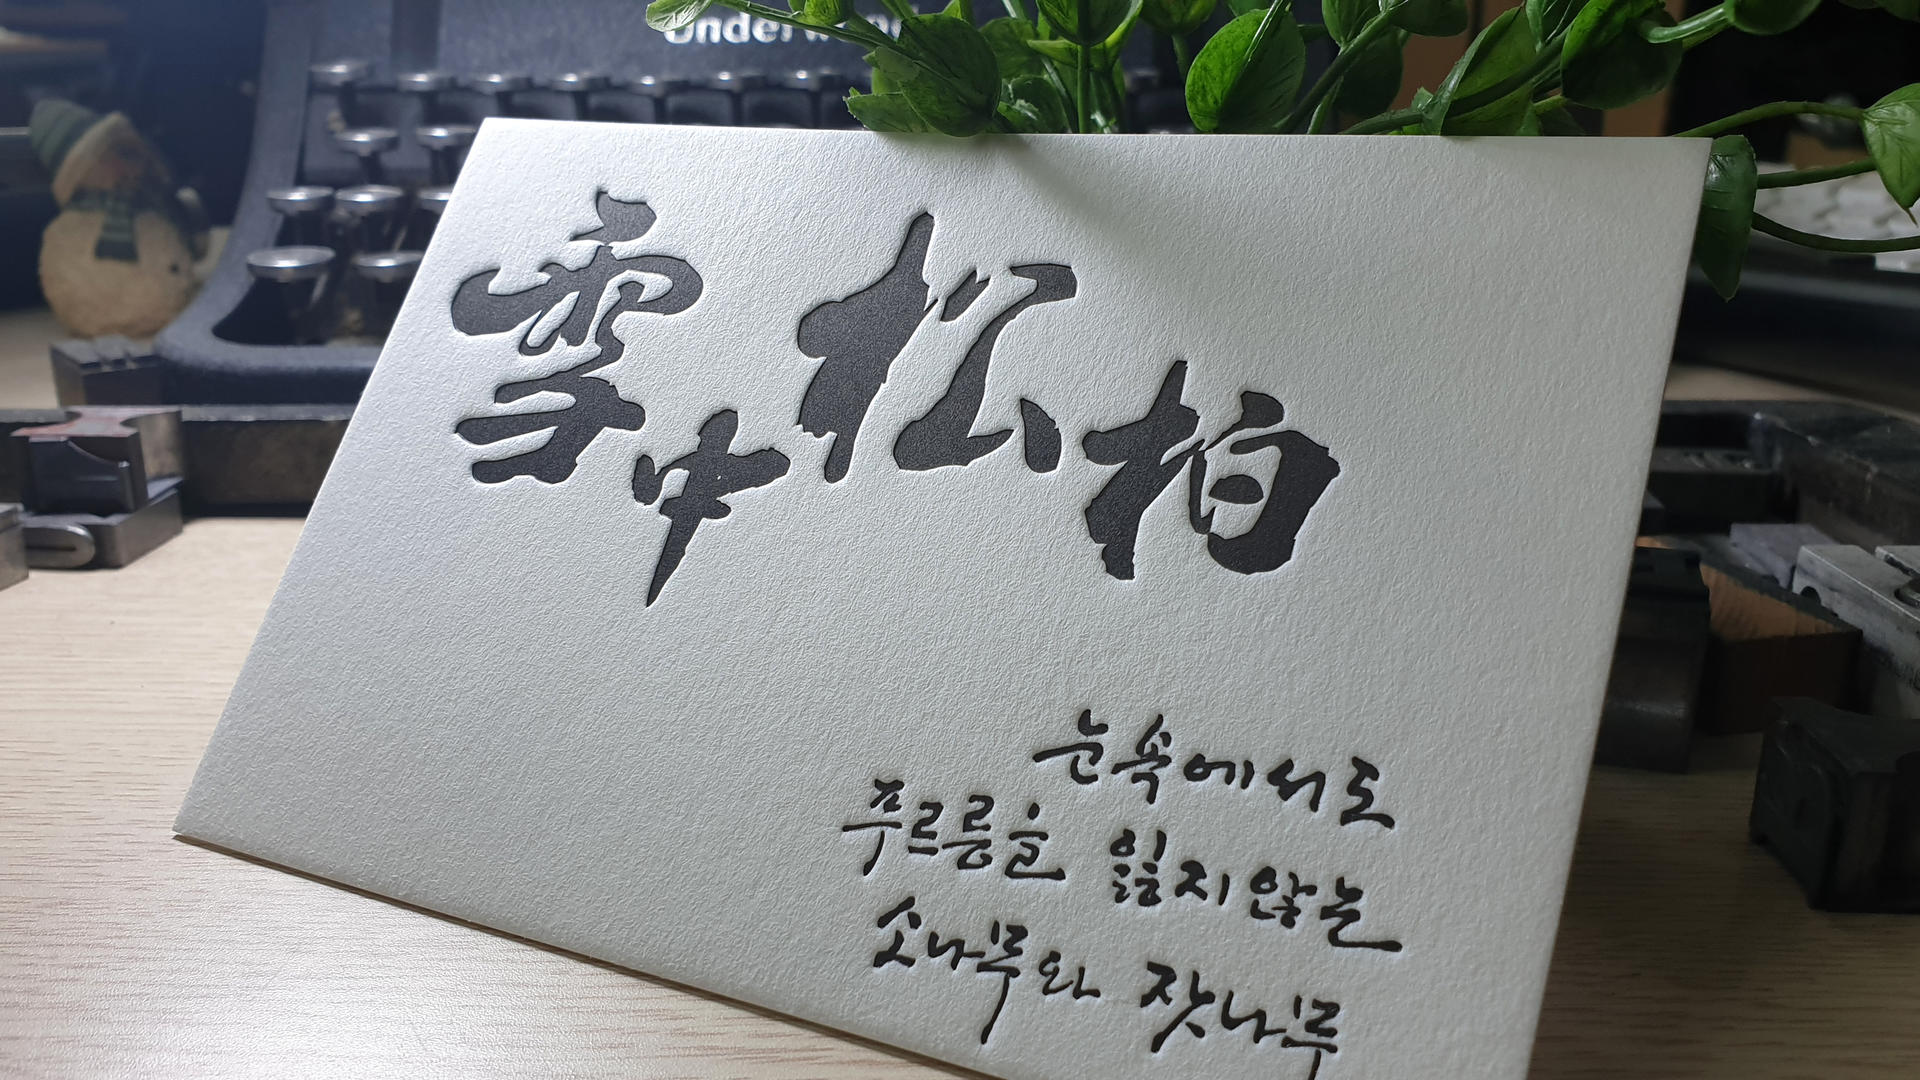 Underwood
雪中松柏
눈속에서도
푸르름을 잃지않는
소나무와 잣나무